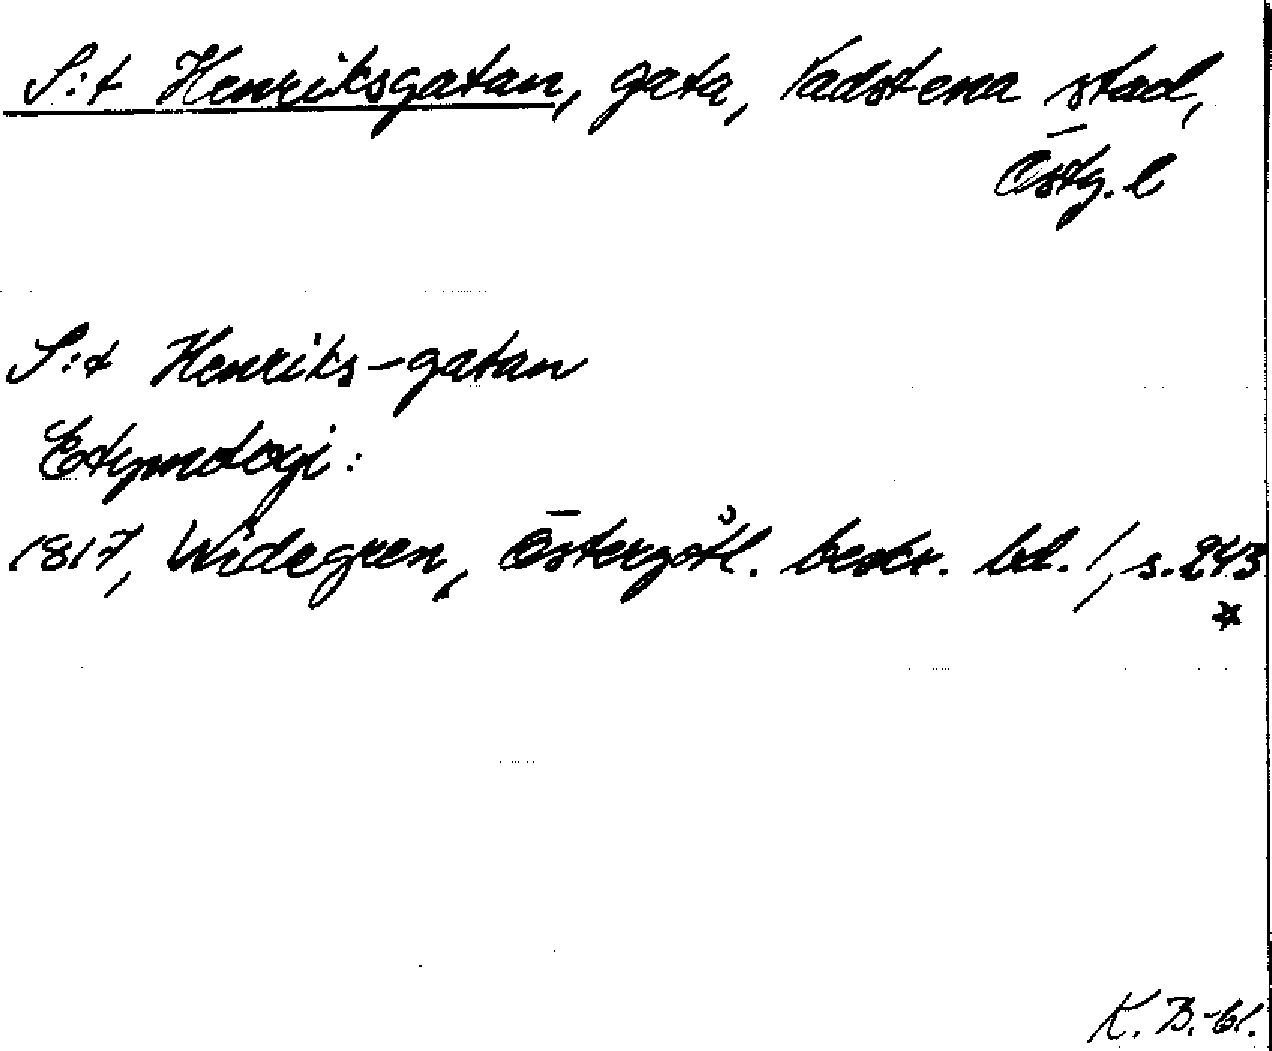 S:t Henriksgatan, gata, Vadstena stad,
Östg. l
S:t Henriks-gatan
Etymologi:
1817, Widegren, Östergötl. beskr. bd. 1, s. 243
*
K. B.-61.